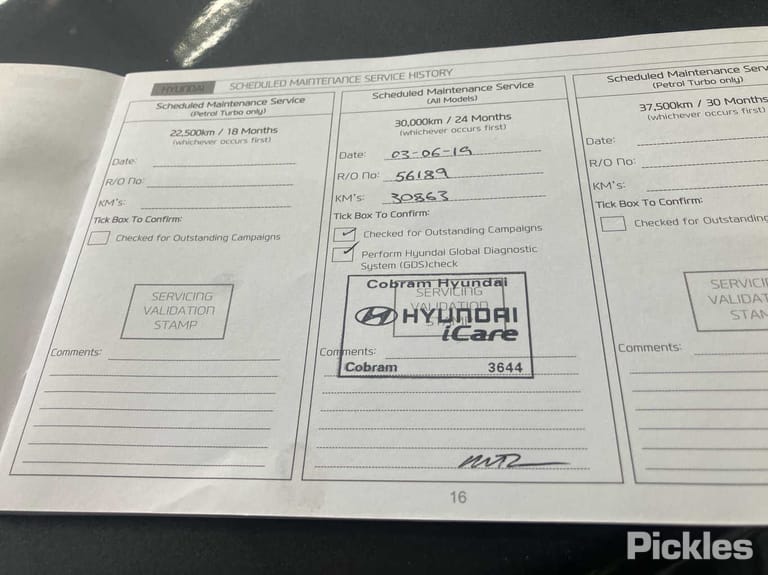 HYUNDAI SCHEDULED MAINTENANCE SERVICE HISTORY
Scheduled Maintenance Service
(Petrol Turbo only)
22,500km / 18 Months
(whichever occurs first)
Date:
R/O No:
KM's:
Tick Box To Confirm:
Checked for Outstanding Campaigns
SERVICING
VALIDATION
STAMP
Comments:
Scheduled Maintenance Service
(All Models)
30,000km / 24 Months
(whichever occurs first)
Date: 03-06-19
R/O No: 56189
KM's: 30863
Tick Box To Confirm:
Checked for Outstanding Campaigns
Perform Hyundai Global Diagnostic
System (GDS)check
Cobram Hyundai
SERVICING
VALIDATION
STAMP
HYUNDAI
iCare
Comments:
Cobram 3644
Scheduled Maintenance Serv
(Petrol Turbo only)
37,500km / 30 Months
(whichever occurs first)
Date:
R/O No:
KM's:
Tick Box To Confirm:
Checked for Outstanding
SERVICI
VALIDAT
STAM
Comments:
16
Pickles